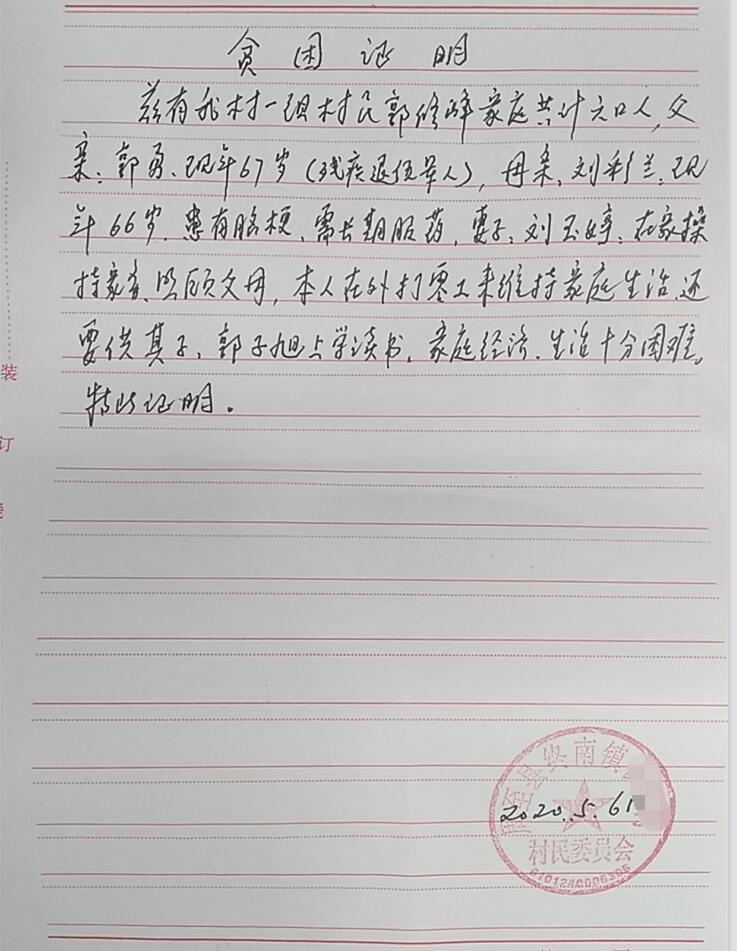 贫困证明
兹有我村一组村民郭修峰家庭共计六口人,父
亲:郭勇、现年67岁(残疾退伍军人),母亲、刘彩兰:现
年66岁.患有脑梗,需长期服药,妻子:刘玉婷:在家操
持家务、照顾父母,本人在外打零工来维持家庭生活.还
要供其子:郭子旭上学读书,家庭经济、生活十分困难。
特此证明。
装
订
县央南镇
2020.5.6
村民委员会